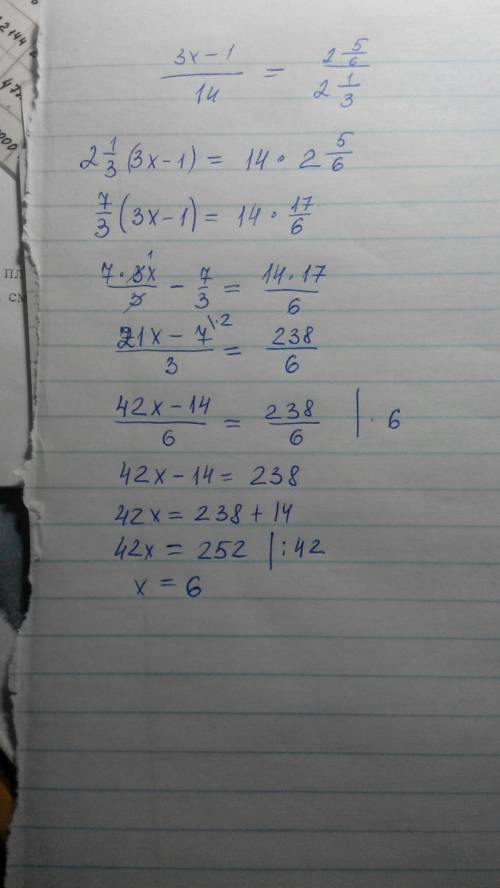 2144
472
000
пл
см
(3x-1)/14 = (2 5/6)/(2 1/3)
2 1/3 (3x-1) = 14 · 2 5/6
7/3 (3x-1) = 14 · 17/6
(7·3x)/3 - 7/3 = (14·17)/6 1
(21x-7)/3 = 238/6 \·2
(42x-14)/6 = 238/6 |·6
42x-14 = 238
42x = 238+14
42x = 252 |:42
x = 6